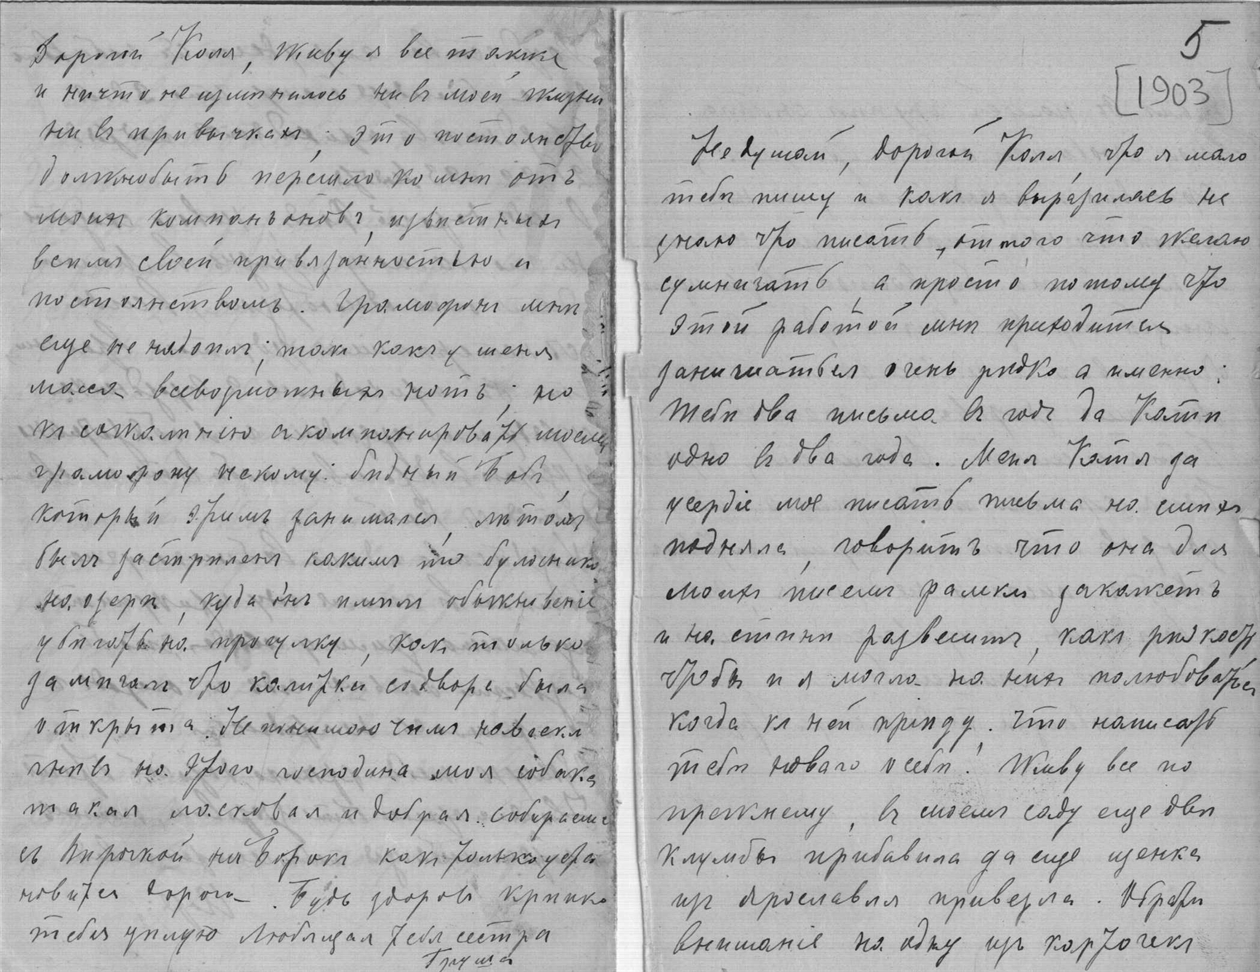 Дорогой Коля, живу я все также
и ничто не изменилось ни въ моей жизни
ни въ привычкахъ; это постоянство
должнобыть перешло ко мнѣ отъ
моихъ компаньоновъ, извѣстныхъ
всѣмъ своей привязанностью и
постоянствомъ. Грамофонъ мнѣ
еще не надоѣлъ; такъ какъ у меня
масса всевозможныхъ нотъ; но
къ сожалѣнію акомпанировать моему
грамофону некому: бѣдный Бобъ,
который этимъ занимался, лѣтомъ
былъ застрѣленъ какимъ то
на озерѣ, куда онъ имѣлъ обыкновеніе
убѣгать на прогулку, какъ только
замѣчалъ что калитка со двора была
открыта. Не понимаю чѣмъ навлекла
гнѣвъ на этого господина моя собака
такая ласковая и добрая. Собираемся
съ Вѣрочкой на Борокъ какъ только уста
новится дорога. Будь здоровъ крѣпко
тебя цѣлую Любящая тебя сестра
Груша
5
[1903]
Не думай, дорогой Коля, что я мало
тебѣ пишу и какъ я выразилась не
знаю что писать, оттого что желаю
сумничать, а просто потому что
этой работой мнѣ приходится
заниматься очень рѣдко а именно:
Тебѣ два письма въ годъ да Катѣ
одно въ два года. Меня Катя за
усердіе мое писать письма на смѣхъ
подняла, говоритъ что она для
моихъ писемъ рамки закажетъ
и на стѣнѣ развѣситъ, какъ рѣдкость
чтобы и я могла на нихъ полюбоваться
когда къ ней пріѣду. Что написать
тебѣ новаго о себѣ! Живу все по
прежнему, въ моемъ саду еще двѣ
клумбы прибавила да еще щенка
изъ Ярославля привезла. Обрати
вниманіе на одну изъ карточекъ